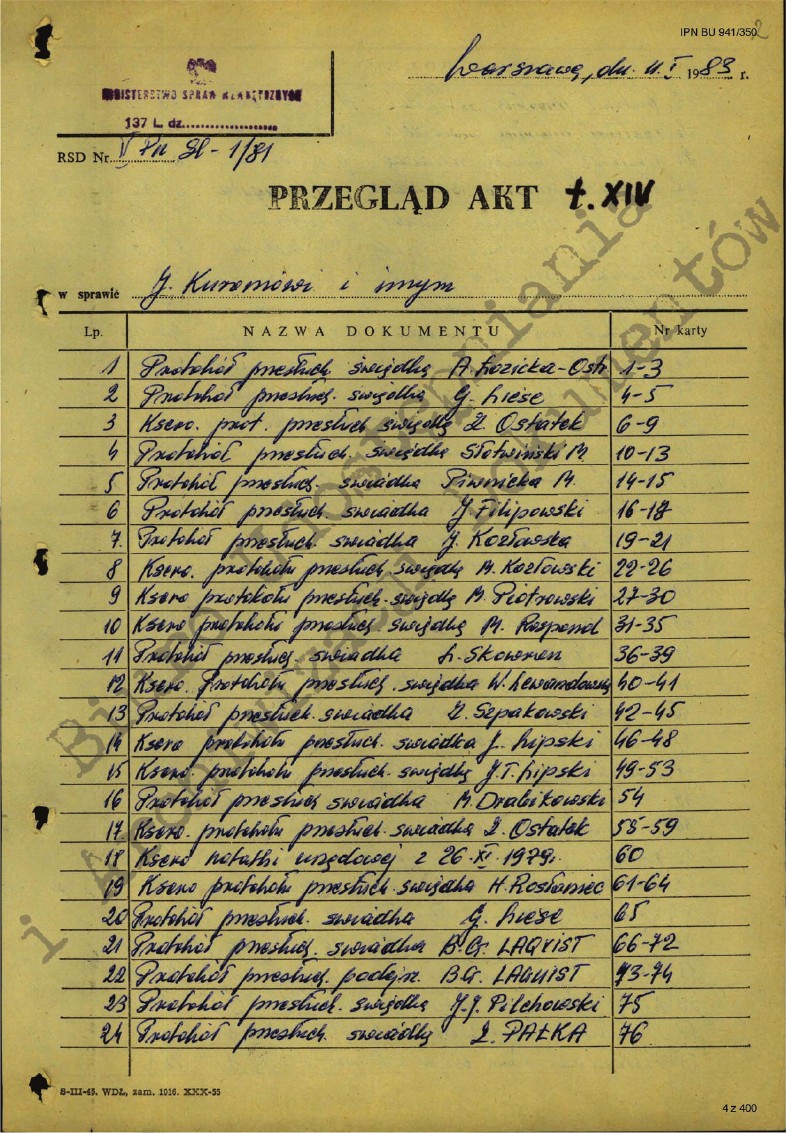 IPN BU 941/350
2
Warszawa, dn. 11.I 1983 r.
MINISTERSTWO SPRAW WEWNĘTRZNYCH
137 L. dz.
RSD Nr. V Pn Śl-1/81
PRZEGLĄD AKT t. XIV
w sprawie J. Kuroniowi i innym
Lp. NAZWA DOKUMENTU Nr karty
1 Protokół przesłuch. świadka A. Łozicka-Ostr. 1-3
2 Protokół przesłuch. świadka G. Liese 4-5
3 Ksero. prot. przesłuch świadka Z. Ostatek 6-9
4 Protokół przesłuch. świadka Słotwiński M. 10-13
5 Protokół przesłuch. świadka Piwnicka M. 14-15
6 Protokół przesłuch. świadka J. Filipowski 16-18
7. Protokół przesłuch. świadka J. Kozłowska 19-21
8 Ksero. protokołu przesłuch. świadka M. Kozłowski 22-26
9 Ksero protokołu przesłuch. świadka M. Piotrowski 27-30
10 Ksero protokołu przesłuch. świadka M. Rospond 31-35
11 Protokół przesłuch. świadka L. Skowron 36-39
12 Ksero. Protokołu przesłuch. świadka W. Lewandowski 40-41
13 Protokół przesłuch. świadka Z. Szpakowski 42-45
14 Ksero protokołu przesłuch. świadka J. Lipski 46-48
15 Ksero. protokołu przesłuch. świadka J.T. Lipski 49-53
16 Protokół przesłuch świadka M. Drabikowski 54
17. Ksero. protokołu przesłuch. świadka Z. Ostatek 58-59
18 Ksero notatki urzędowej z 26.XI.1979r. 60
19 Ksero protokołu przesłuch. świadka H. Rosłaniec 61-64
20 Protokół przesłuch. świadka G. Liese 65
21 Protokół przesłuch. świadka B.G. LAQVIST 66-72
22 Protokół przesłuch. podejrz. B.G. LAQUIST 73-74
23 Protokół przesłuch. świadka J.J. Pilchowski 75
24 Protokół przesłuch. świadka Z. PAŁKA 76
Biuro Udostępniania
i Archiwizacji Dokumentów
S-III-45. WDŁ, zam. 1016. XXX-55
4 z 400